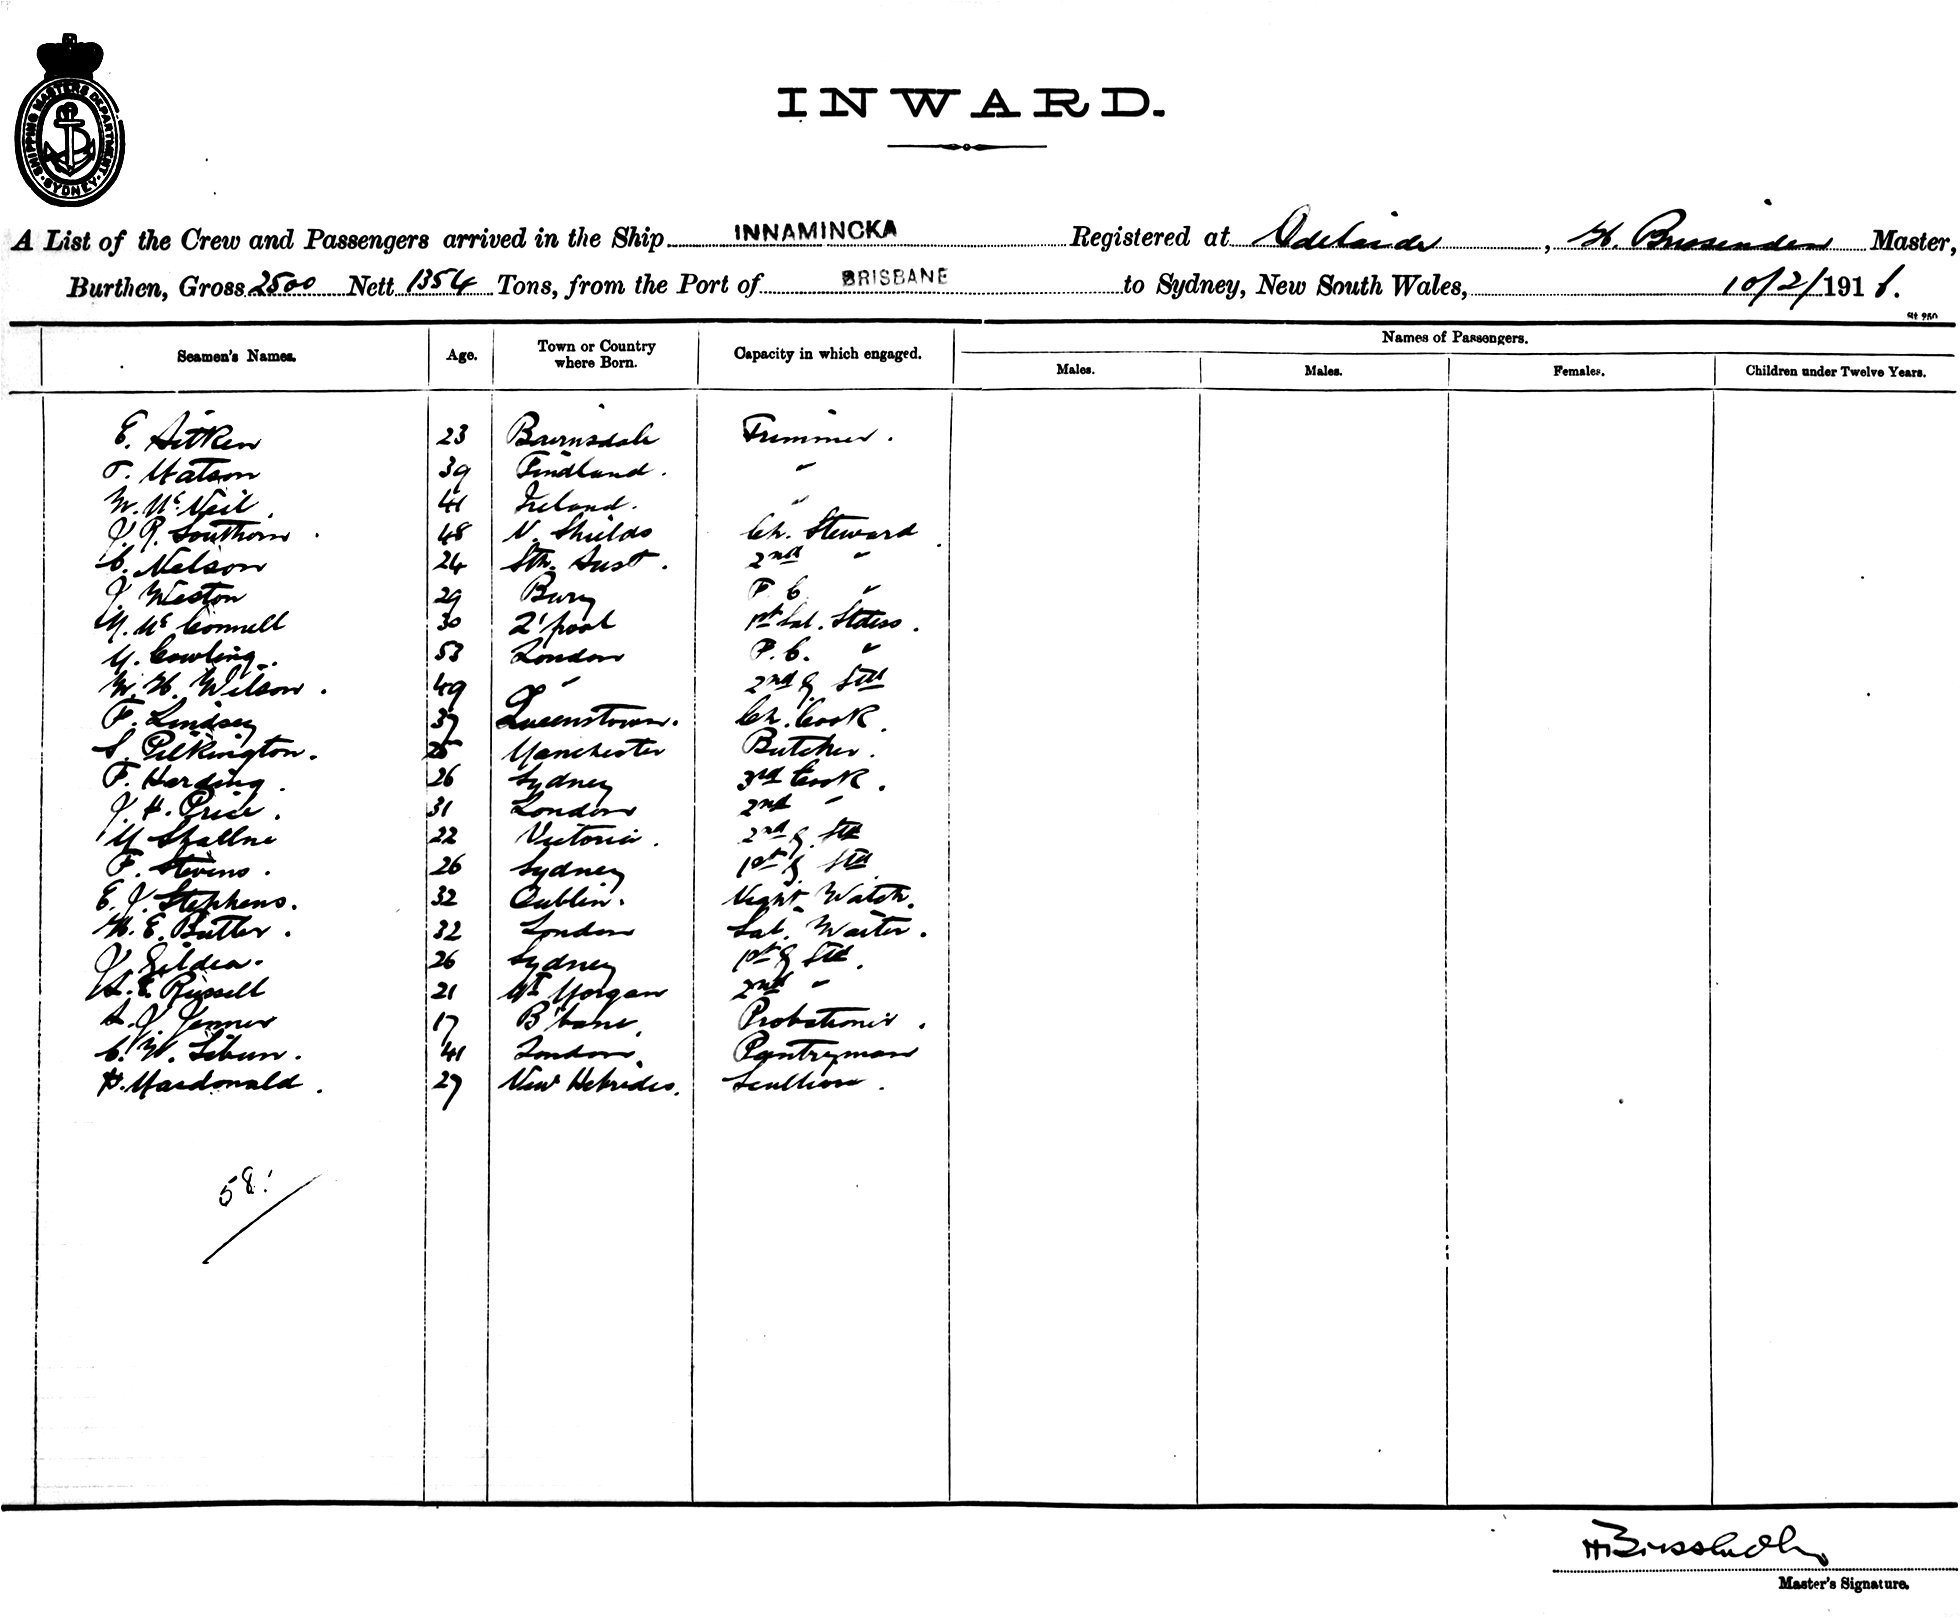 SHIPPING MASTERS DEPARTMENT
SYDNEY
INWARD.
A List of the Crew and Passengers arrived in the Ship INNAMINCKA Registered at Adelaide, H. Brissenden Master,
Burthen, Gross 2500 Nett 1354 Tons, from the Port of BRISBANE to Sydney, New South Wales, 10/2/191
St 950
Names of Passengers.
Seamen's Names. Age. Town or Country where Born. Capacity in which engaged. Males. Males. Females. Children under Twelve Years.
E. Aitken 23 Bairnsdale Trimmer.
T. Watson 39 Findland. "
W. McNeil 41 Ireland. "
J. R. Southern 48 N. Shields Ch. Steward
C. Nelson 24 Sth. Aust. 2nd "
J. Weston 29 Bury F. C. "
M. McConnell 30 L'pool 1st Sal. Stdess.
M. Cowling 53 London F. C. "
W. H. Wilson. 49 " 2nd G. Std
F. Lindsey 37 Queenstown. Ch. Cook
S. Pilkington. 25 Manchester Butcher.
F. Harding. 26 Sydney 3rd Cook.
J. H. Price. 31 London 2nd "
M 22 Victoria. 2nd G. Std
F. Stevens. 26 Sydney 1st G. Std
E. J. Stephens. 32 Dublin. Night Watch.
W. E. Butler. 32 London Sal. Waiter.
J. Gildea. 26 Sydney 1st G Std.
A. E. Russell 21 Mt Morgan 2nd "
A. J. Jenner 17 B'bane. Probationer.
C. W. 41 London. Pantryman
H. Macdonald. 27 New Hebrides. Scullion.
58.
H Brissenden
Master's Signature.